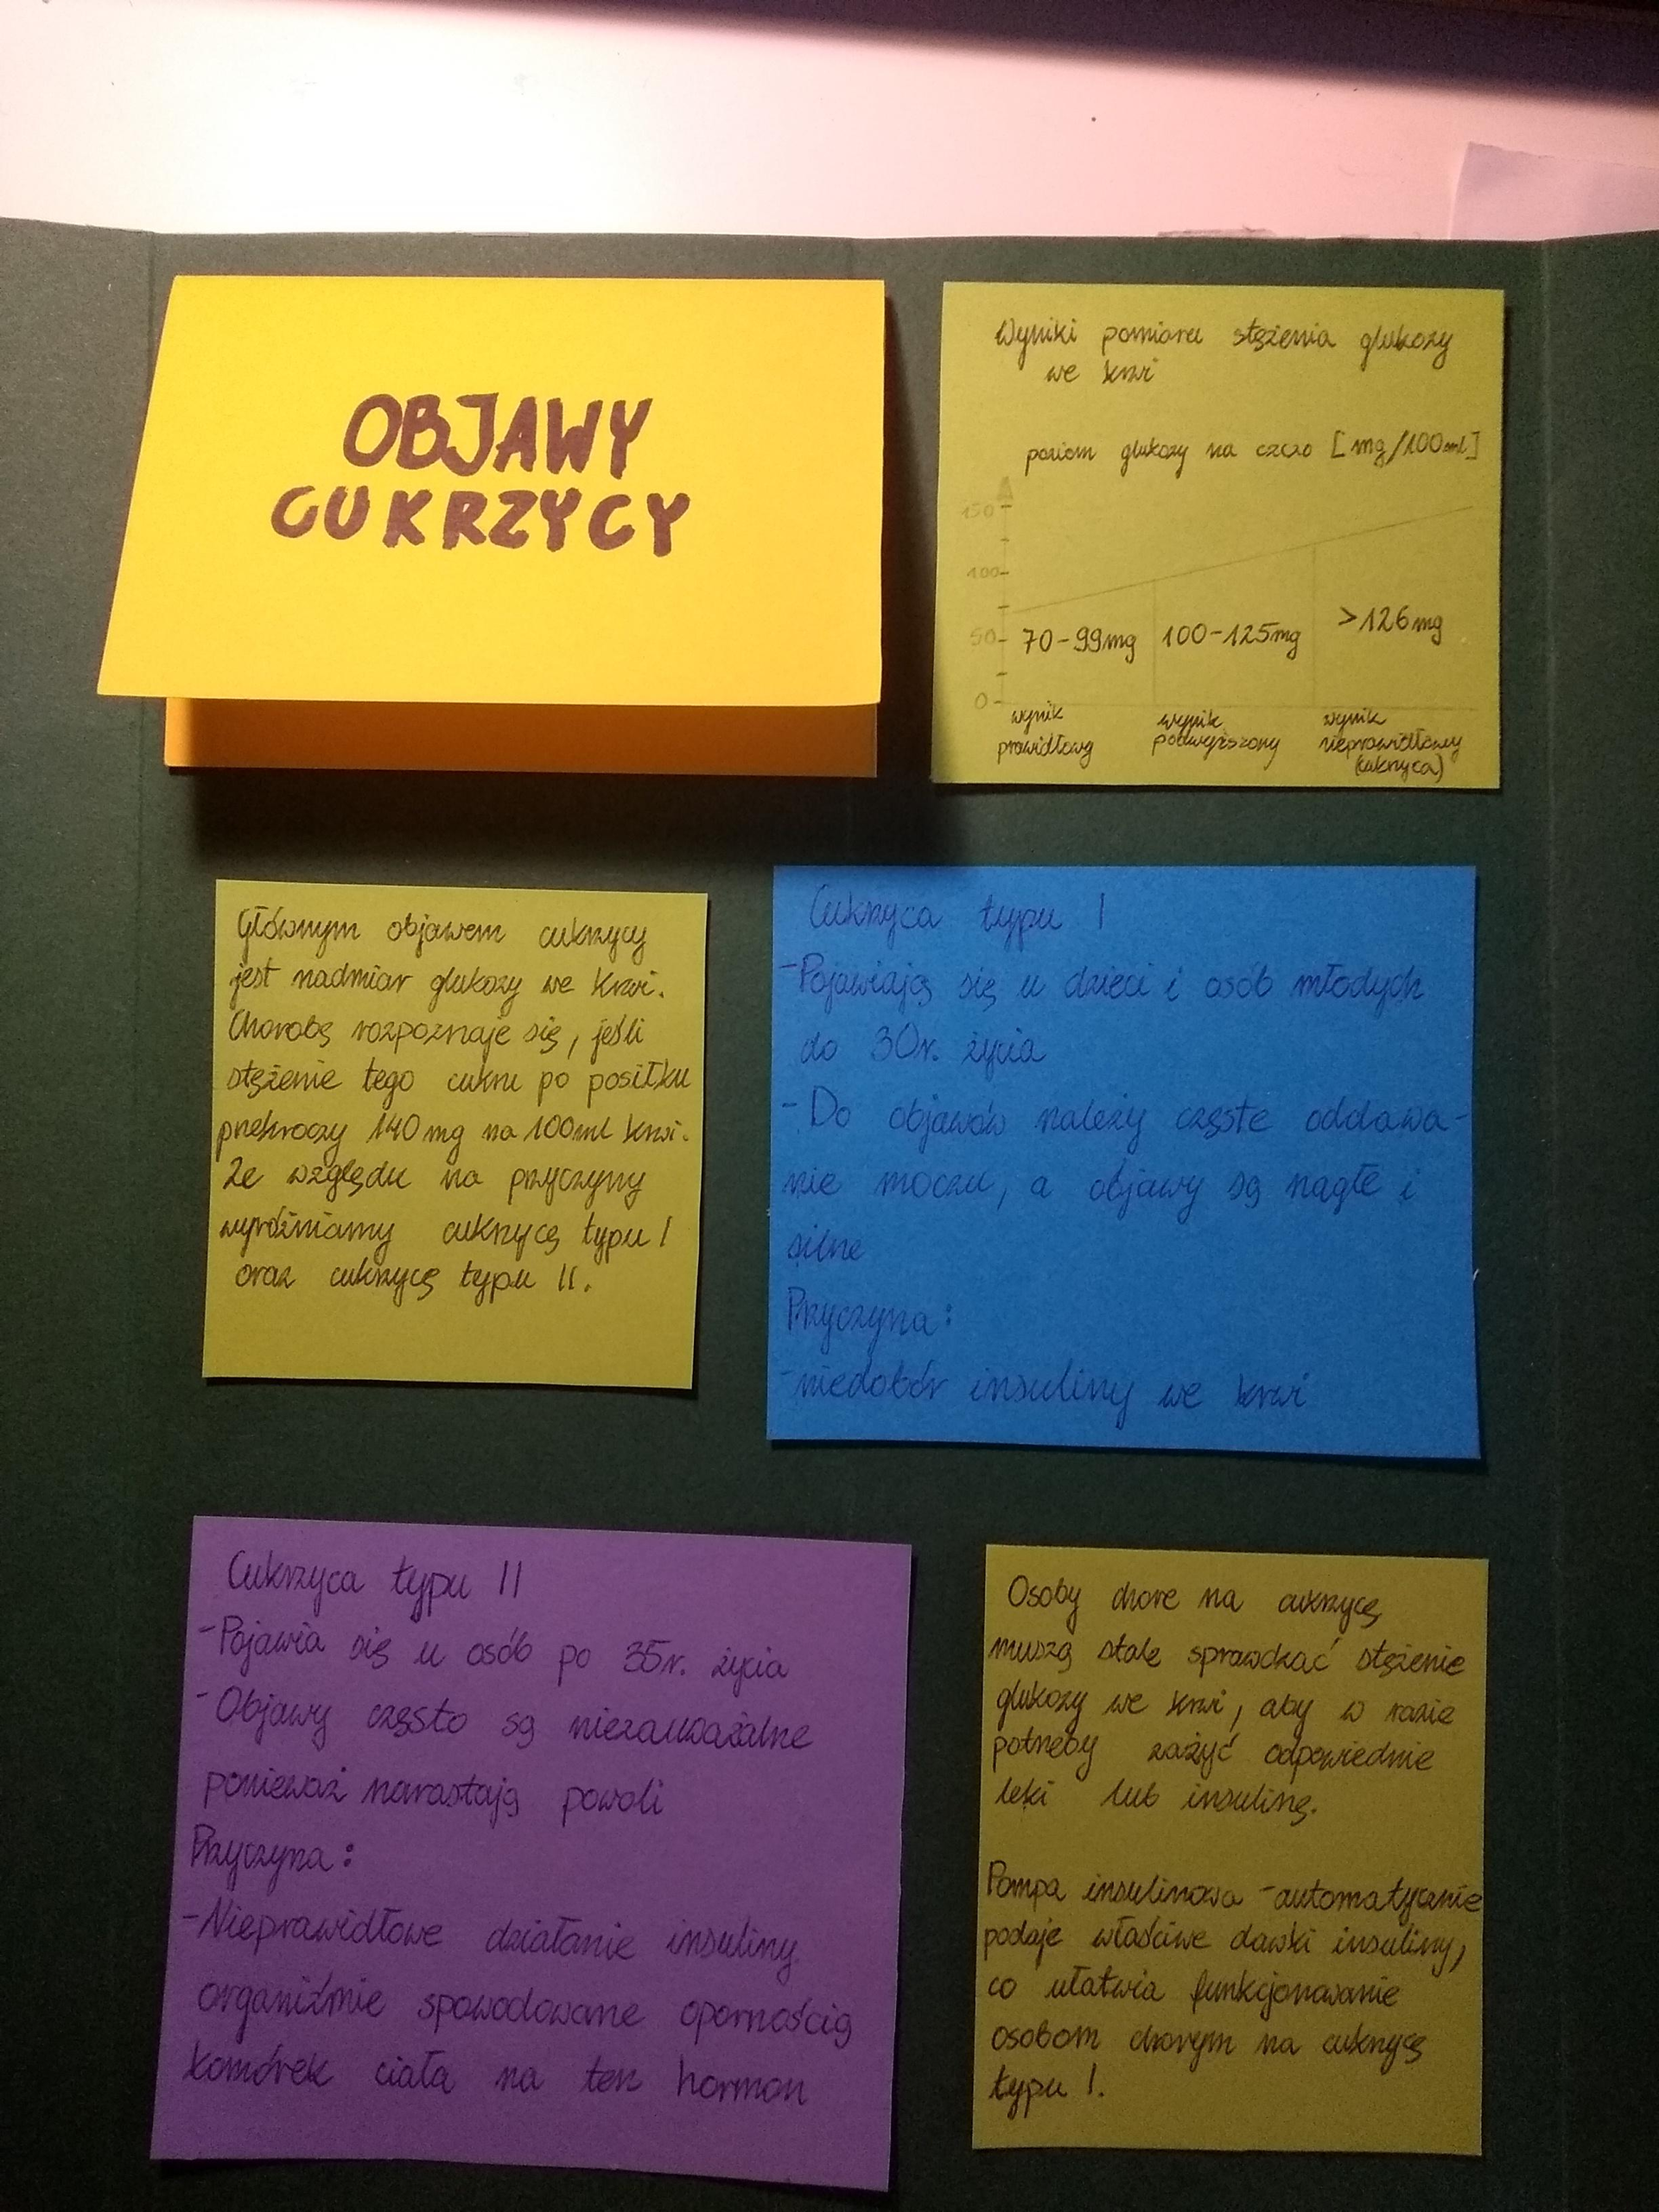 OBJAWY
CUKRZYCY
Wyniki pomiaru stężenia glukozy
we krwi
poziom glukozy na czczo [mg/100ml]
150
100
50
0
70-99mg
100-125mg
>126mg
wynik
prawidłowy
wynik
podwyższony
wynik
nieprawidłowy
(cukrzyca)
Głównym objawem cukrzycy
jest nadmiar glukozy we krwi.
Chorobę rozpoznaje się, jeśli
stężenie tego cukru po posiłku
przekroczy 140 mg na 100ml krwi.
Ze względu na przyczyny
wyróżniamy cukrzycę typu I
oraz cukrzycę typu II.
Cukrzyca typu I
-Pojawiają się u dzieci i osób młodych
do 30r. życia
-Do objawów należy częste oddawa-
nie moczu, a objawy są nagłe i
silne
Przyczyna:
-niedobór insuliny we krwi
Cukrzyca typu II
-Pojawia się u osób po 35r. życia
-Objawy często są niezauważalne
ponieważ narastają powoli
Przyczyna:
-Nieprawidłowe działanie insuliny
organiźmie spowodowane opornością
komórek ciała na ten hormon
Osoby chore na cukrzycę
muszą stale sprawdzać stężenie
glukozy we krwi, aby w razie
potrzeby zażyć odpowiednie
leki lub insulinę.
Pompa insulinowa -automatycznie
podaje właściwe dawki insuliny,
co ułatwia funkcjonowanie
osobom chorym na cukrzycę
typu I.